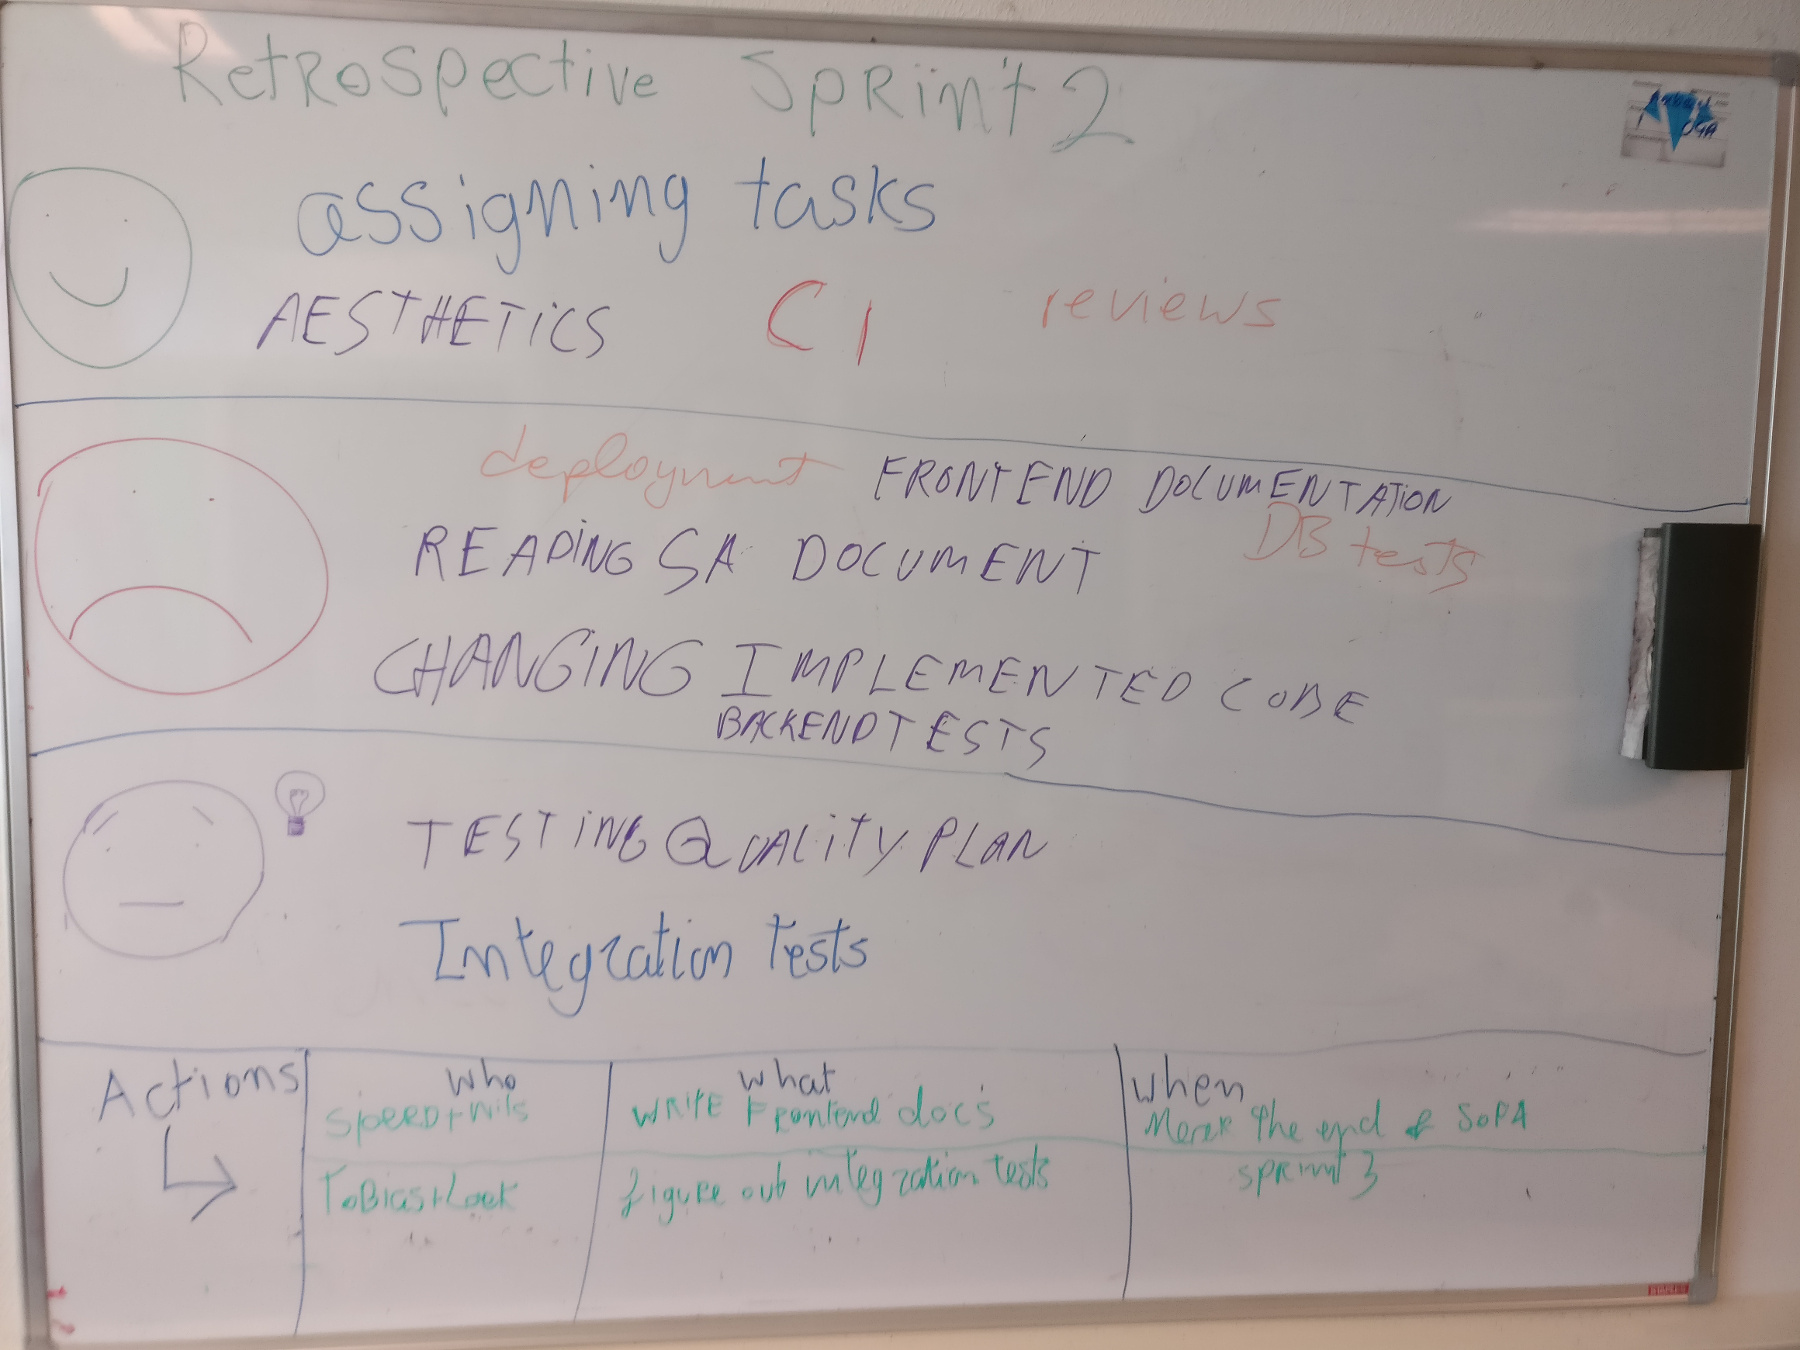 Retrospective Sprint 2
assigning tasks
AESTHETICS CI reviews
deployment FRONTEND DOCUMENTATION
READING SA DOCUMENT DB tests
CHANGING IMPLEMENTED CODE
BACKEND TESTS
TESTING QUALITY PLAN
Integration tests
Actions who what when
WRITE Frontend docs the end of
Tobias+Loek figure out integration tests sprint 3